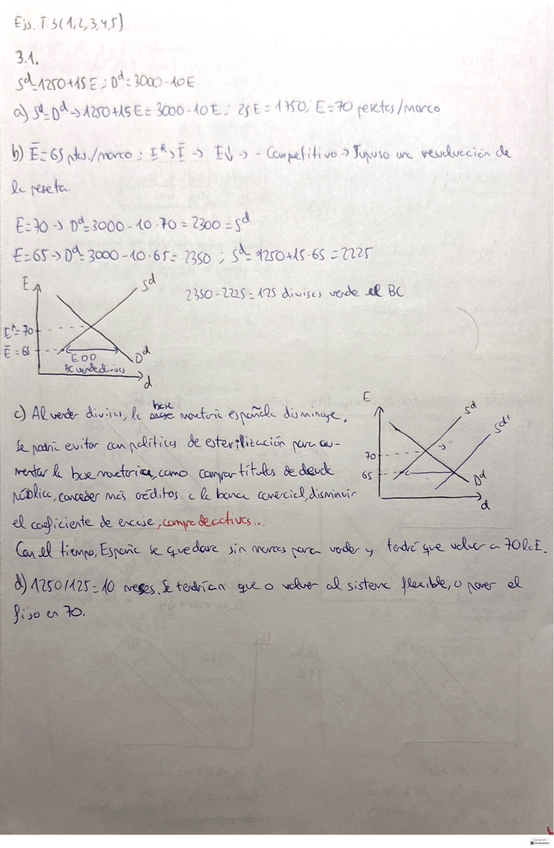 Ejs. T.3 (1,2,3,4,5)
3.1.
Sd=1250+15E ; Dd=3000-10E
a) Sd=Dd → 1250+15E = 3000-10E ; 25E = 1750 ; E=70 pesetas/marco
b) Ē=65 pts./marco ; E*>Ē → E↓ → - Competitivo → Supuso una revaluación de
la peseta.
E=70 → Dd=3000-10·70 = 2300 = Sd
E=65 → Dd=3000-10·65= 2350 ; Sd=1250+15·65 = 2225
2350-2225=125 divisas vende el BC
E
Sd
E*=70
Ē=65
EDD
BC vende divisas
Dd
d
c) Al vender divisas, la base monetaria española disminuye.
Se podría evitar con políticas de esterilización para au-
mentar la base monetaria, como comprar títulos de deuda
pública, conceder más créditos a la banca comercial, disminuir
el coeficiente de encaje, compra de activos...
E
Sd
Sd'
70
65
Dd
d
Con el tiempo, España se quedará sin marcos para vender y tendrá que volver a 70 la E.
d) 1250/125=10 meses. Se tendrían que o volver al sistema flexible, o poner el
fijo en 70.